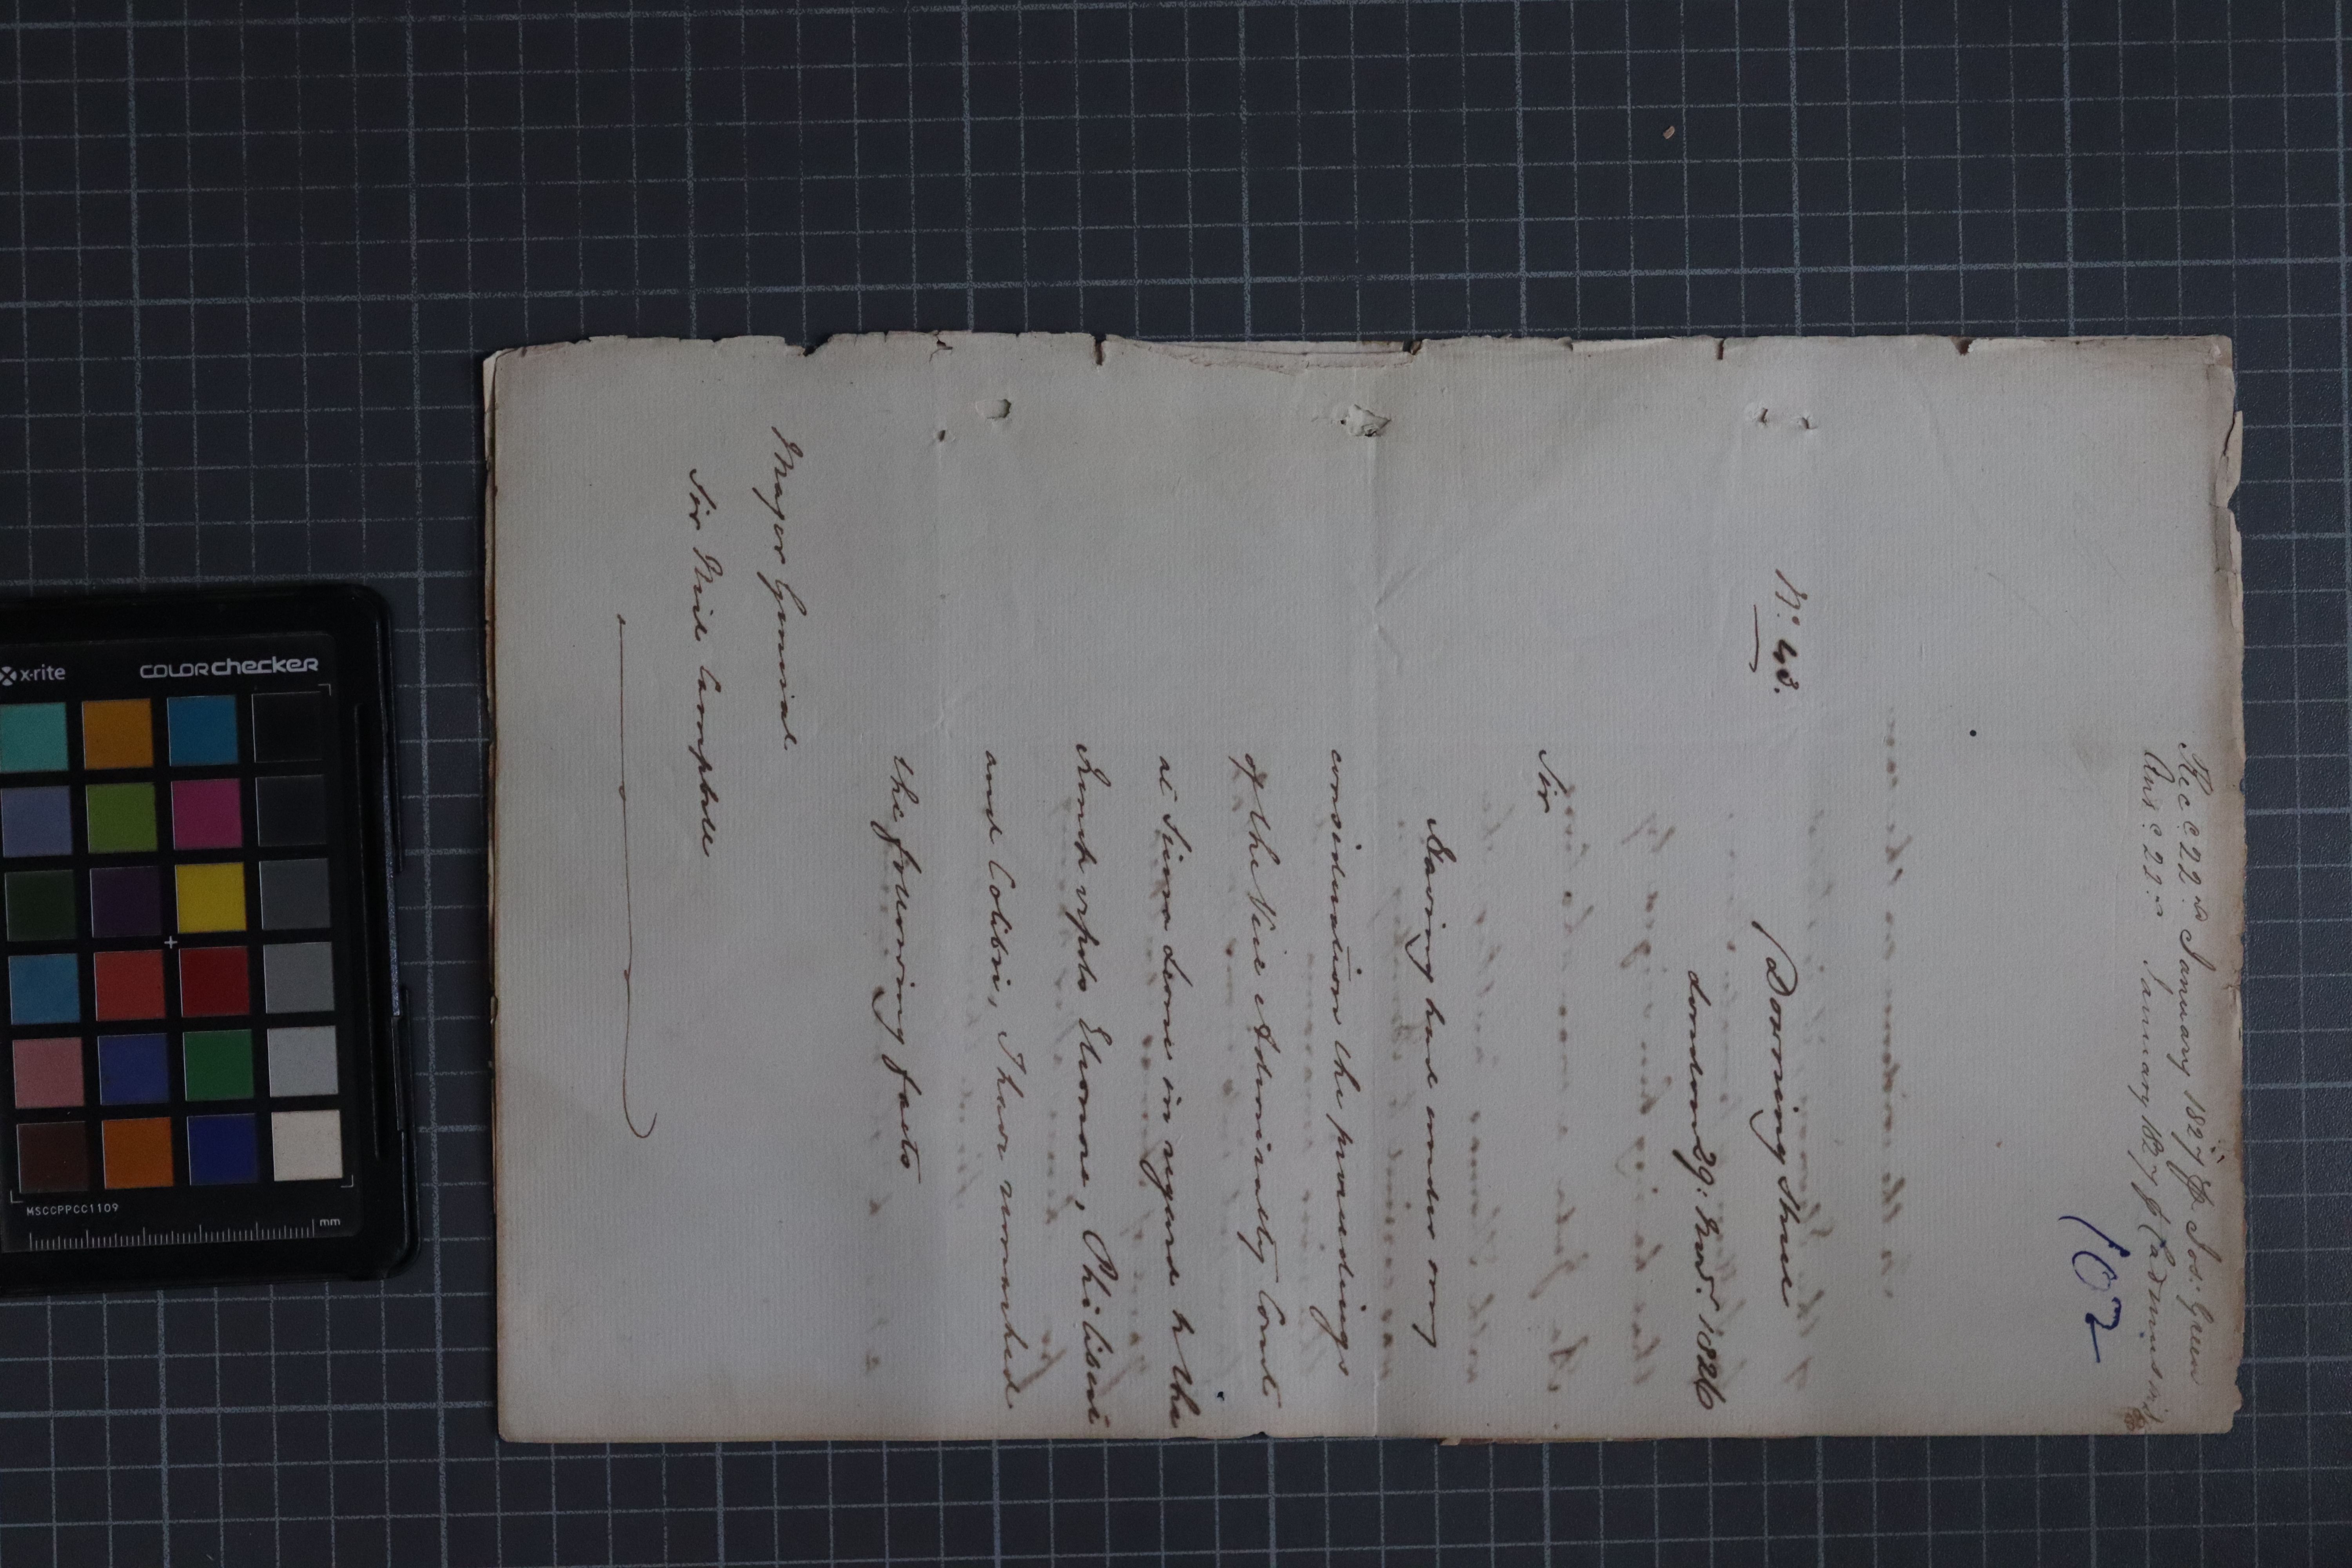 Rec.d 22.d January 1827 p. Jos: Green
Ans.d 22.d January 1827 p.
102
N.o 43.
Downing Street
London 29: Nov.r 1826
Sir
Having had under my
consideration the proceedings
of the Vice Admiralty Court
at Sierra Leone in regard to the
French vessels Eleonore, Philibert
and Colibri, I have remarked
the following facts
Major General
Sir Neil Campbell
x-rite
COLORchecker
MSCCPPCC1109
mm